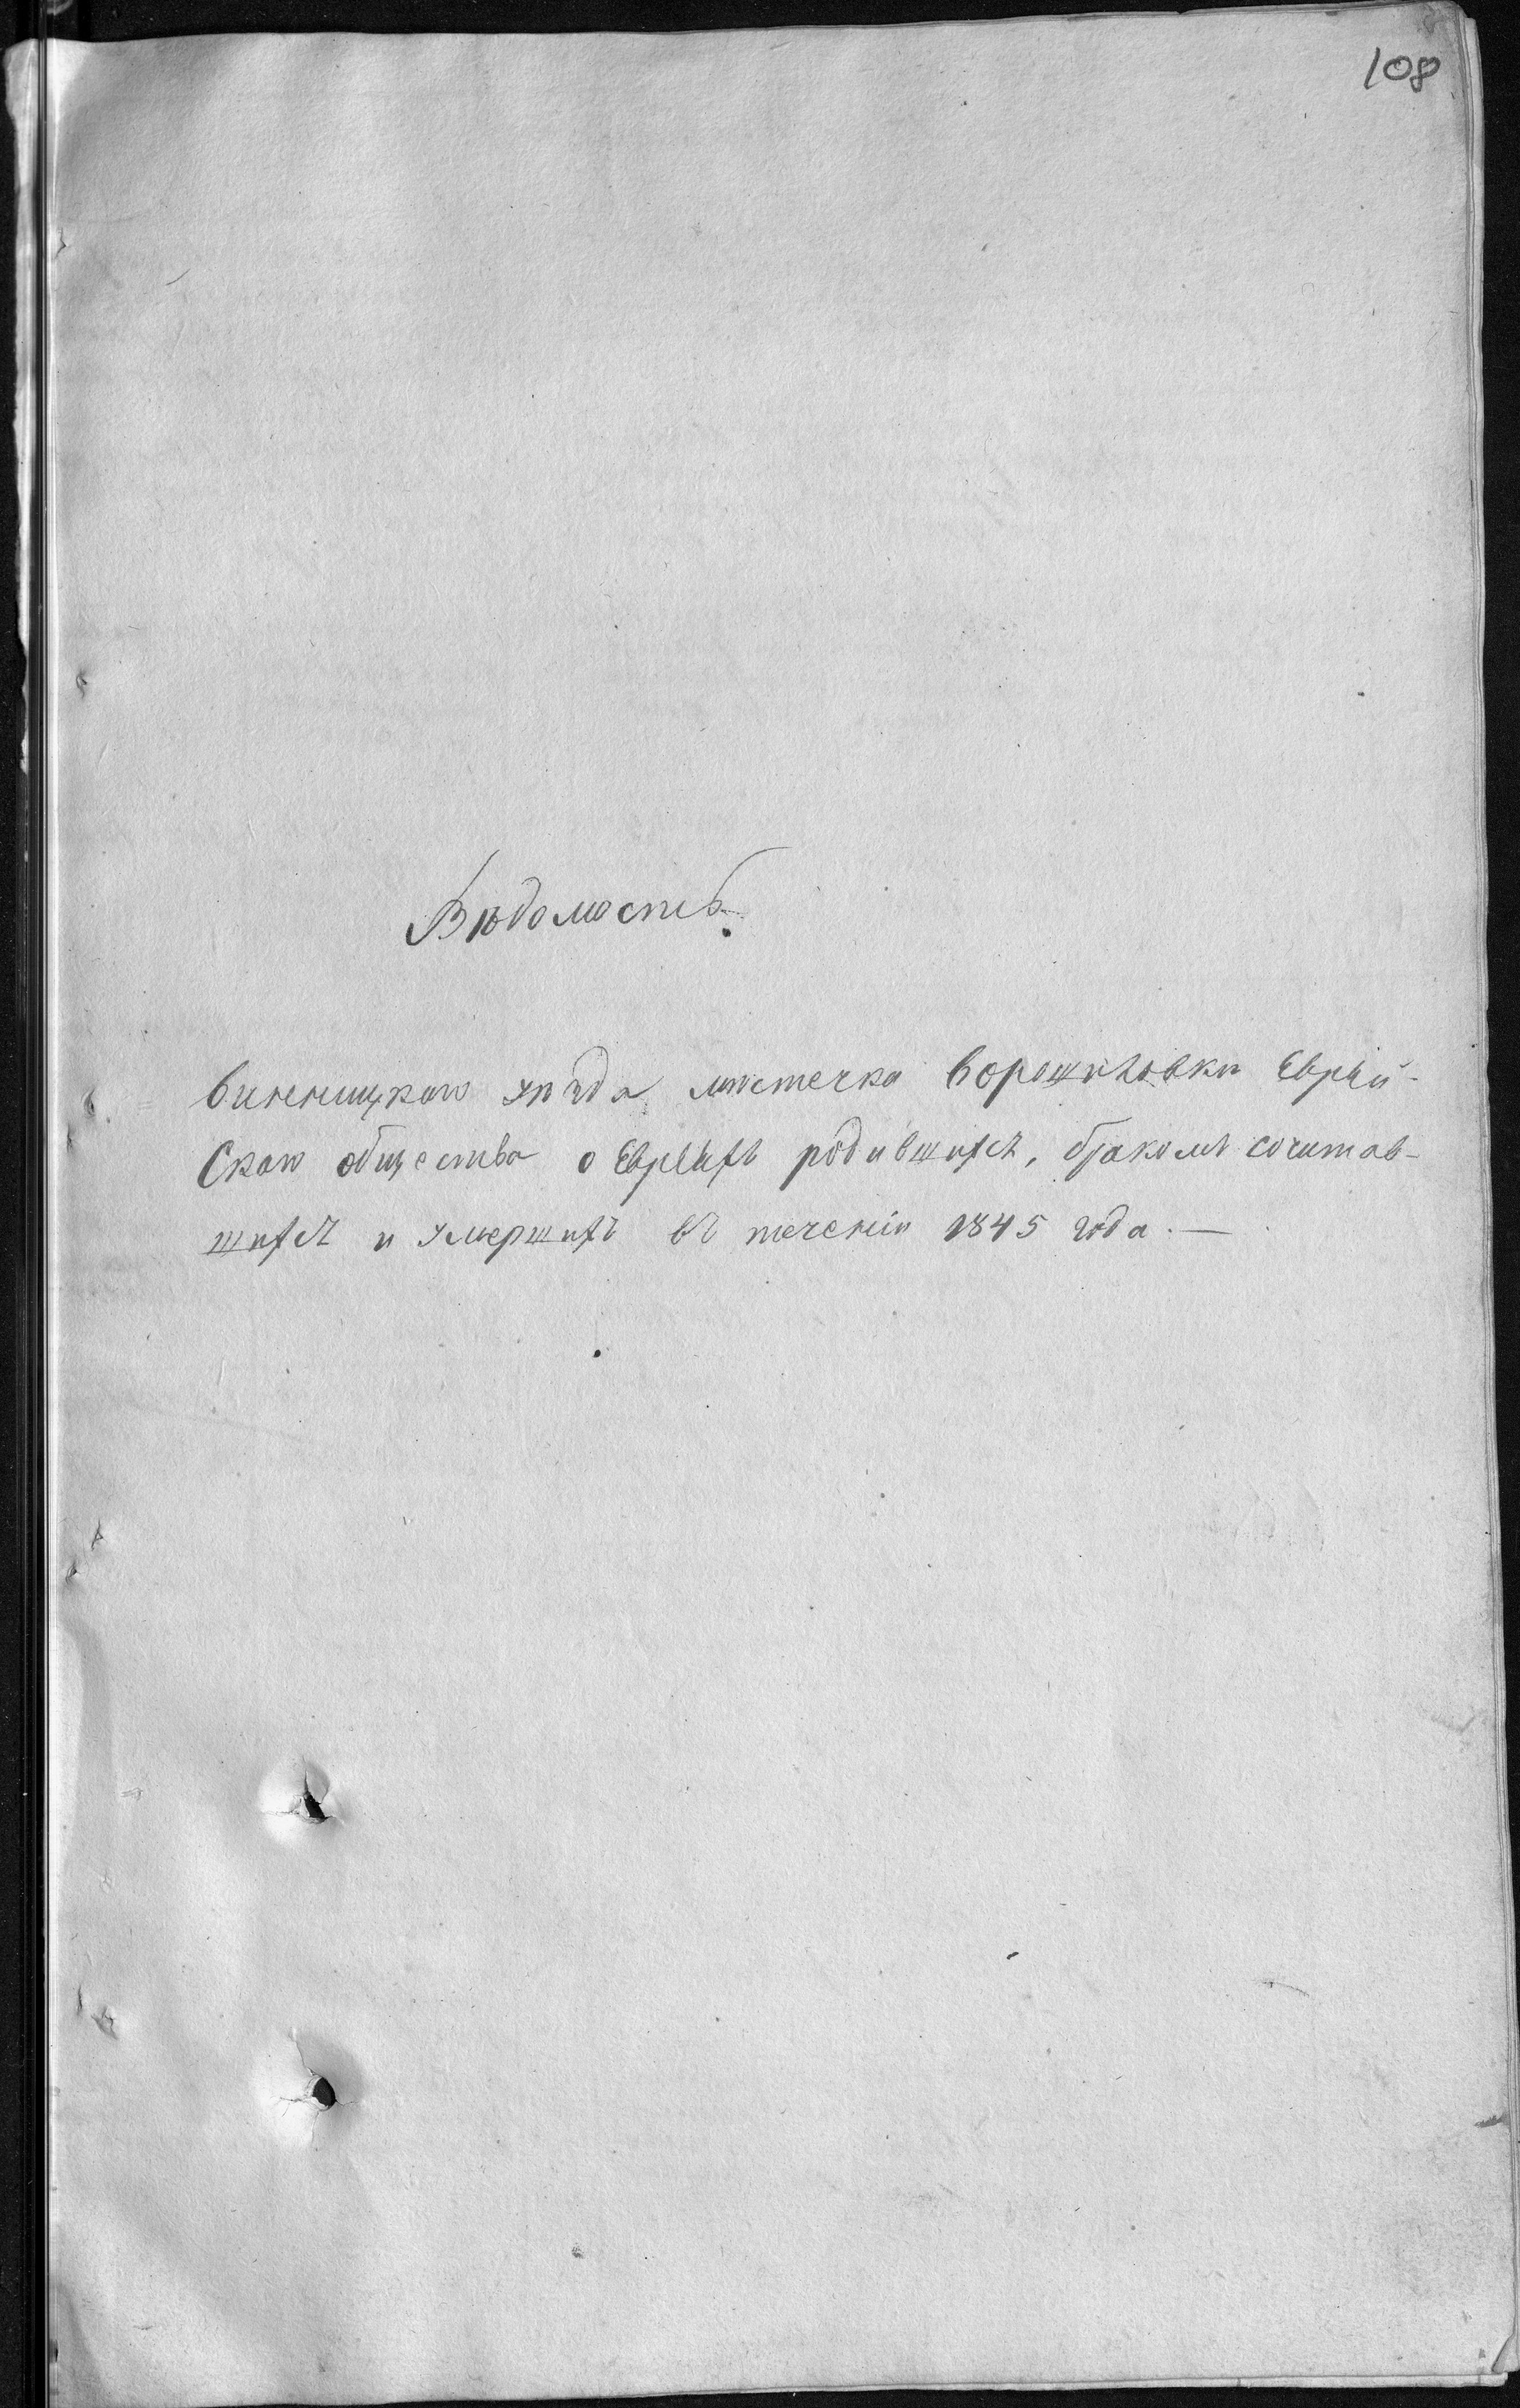 108
Вѣдомость.
Винницкаго уѣзда мѣстечка Ворошиловки Еврей-
скаго общества о Евреяхъ родившихся, бракомъ сочитав-
шихся и умершихъ въ теченіи 1845 года. —